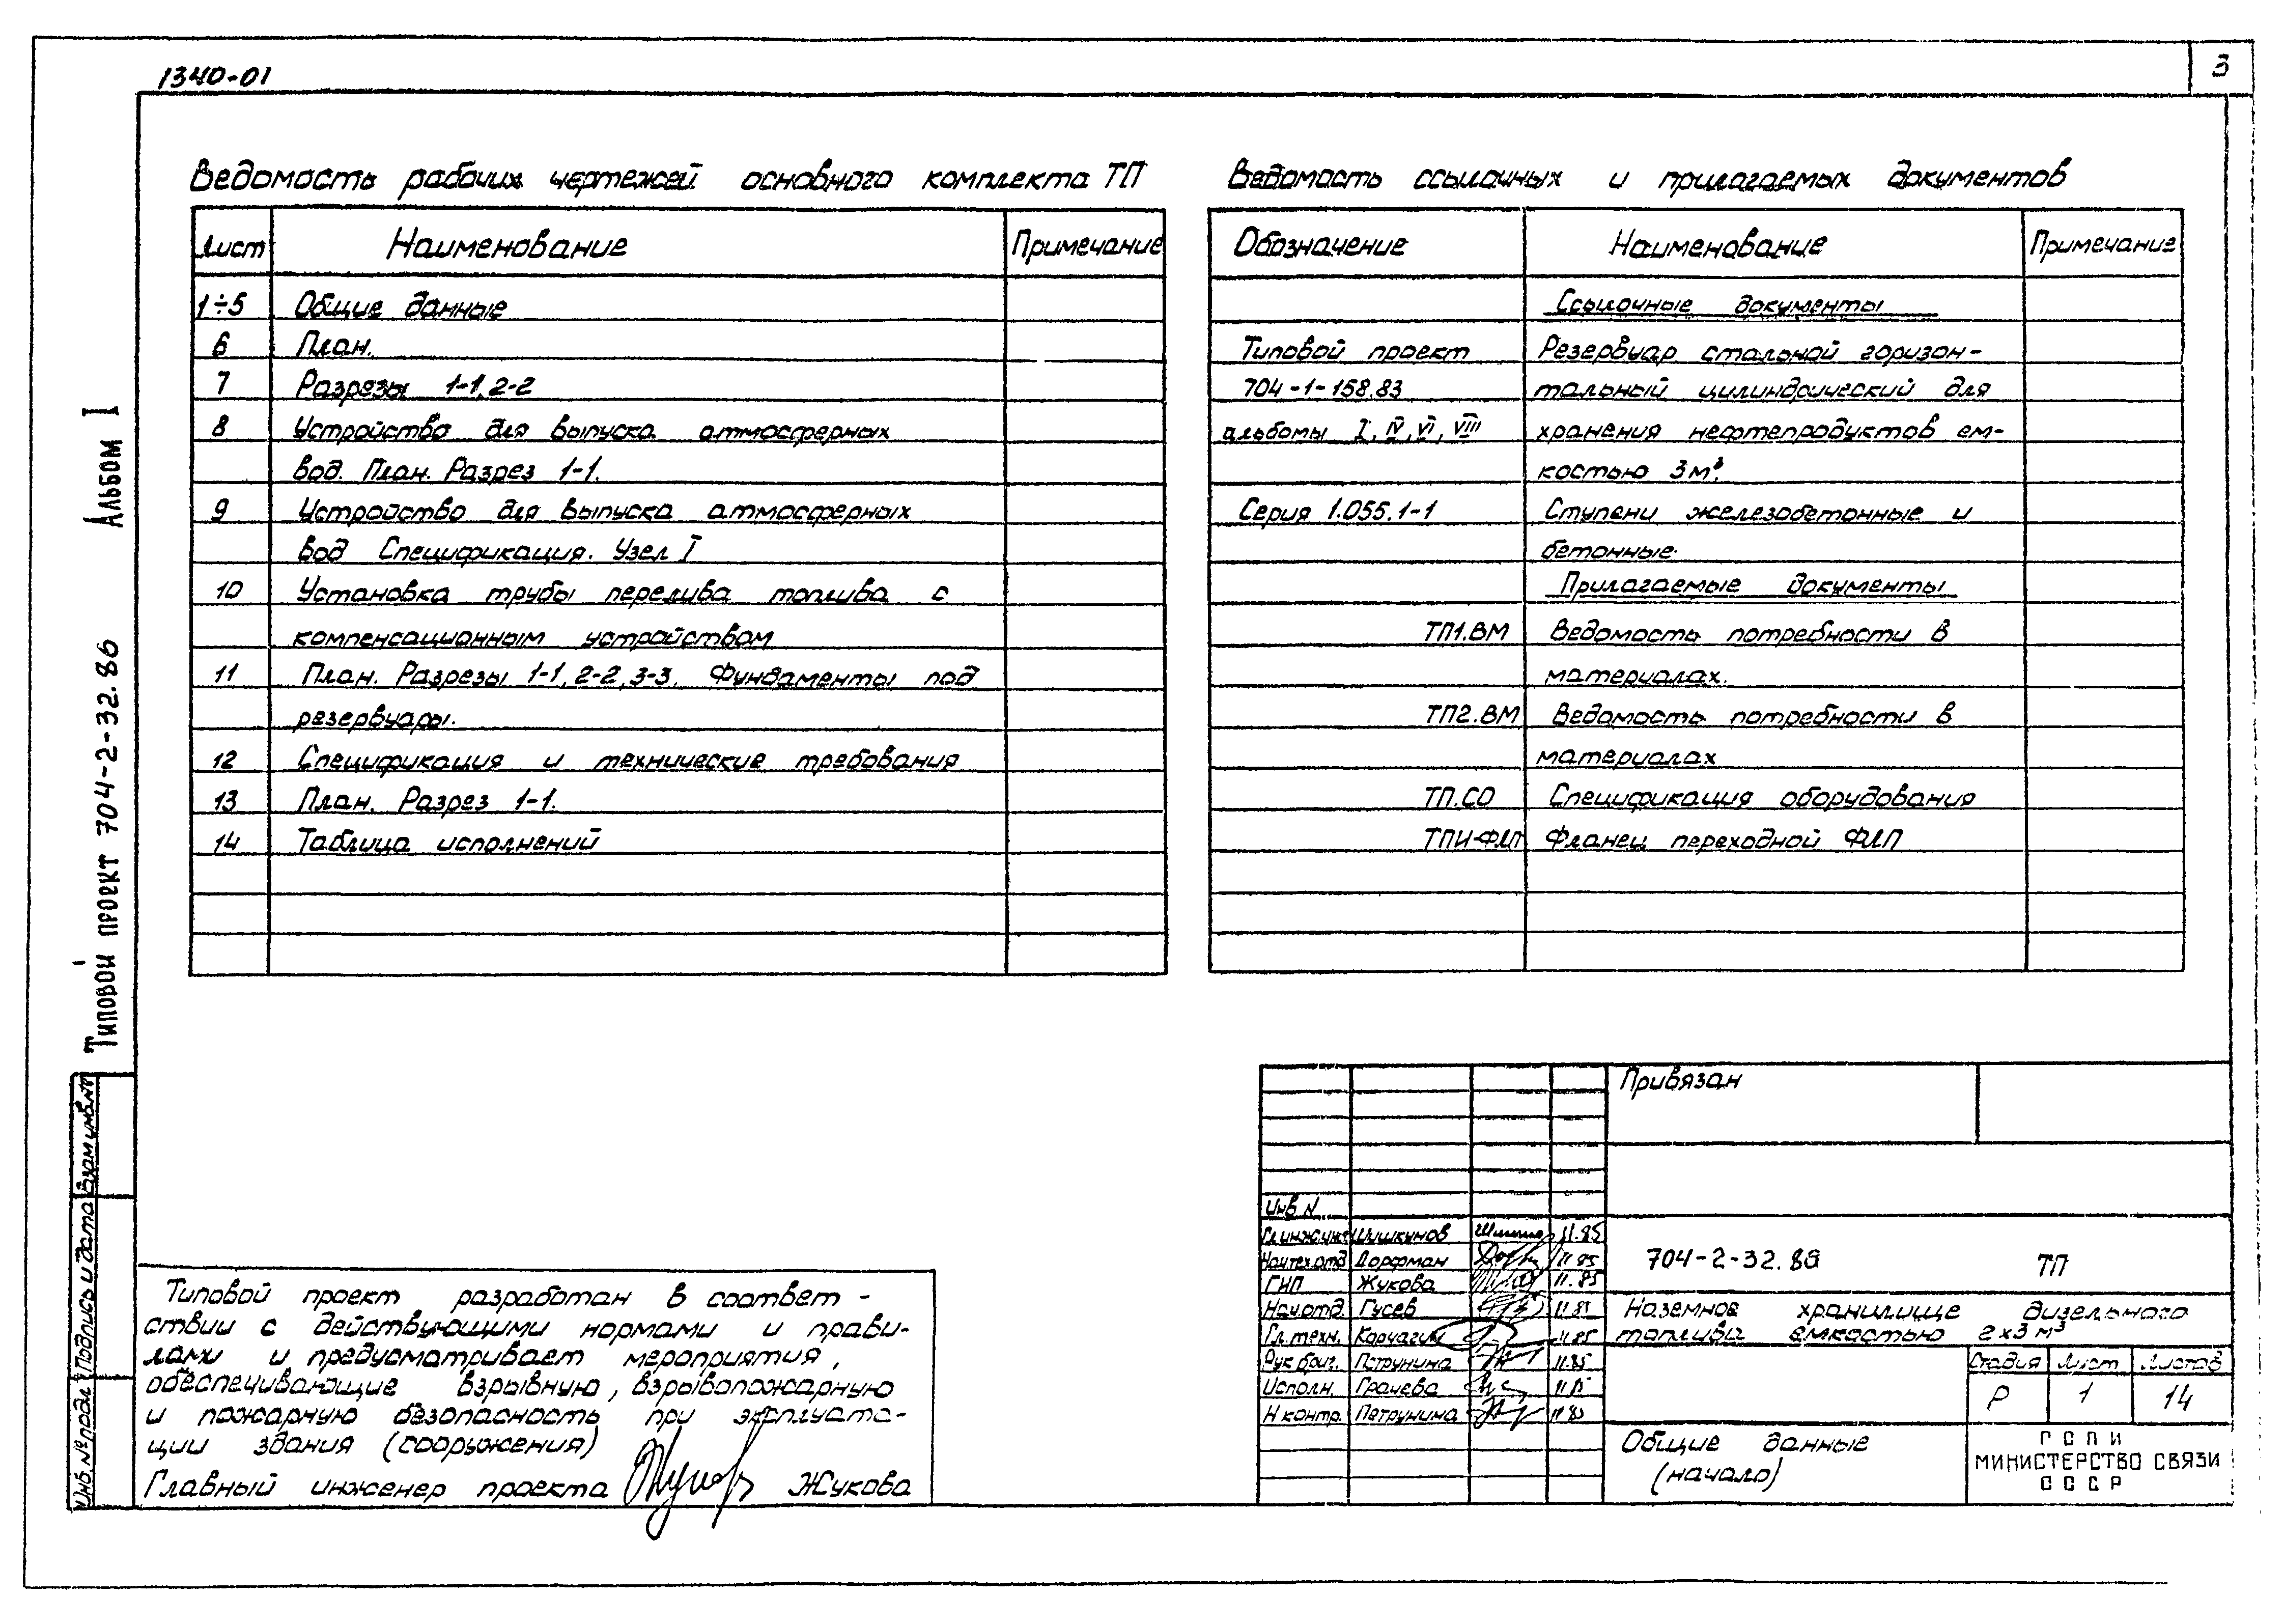 1340-01
3
Альбом I
Типовой проект 704-2-32.86
Ведомость рабочих чертежей основного комплекта ТП
Лист Наименование Примечание
1÷5 Общие данные
6 План.
7 Разрезы 1-1, 2-2
8 Устройство для выпуска атмосферных
вод. План. Разрез 1-1.
9 Устройство для выпуска атмосферных
вод Спецификация. Узел I
10 Установка трубы перелива топлива с
компенсационным устройством
11 План. Разрезы 1-1, 2-2, 3-3. Фундаменты под
резервуары.
12 Спецификация и технические требования
13 План. Разрез 1-1.
14 Таблица исполнений
Ведомость ссылочных и прилагаемых документов
Обозначение Наименование Примечание
Ссылочные документы
Типовой проект Резервуар стальной горизон-
704-1-158.83 тальный цилиндрический для
альбомы I, IV, VI, VIII хранения нефтепродуктов ем-
костью 3м³.
Серия 1.055.1-1 Ступени железобетонные и
бетонные.
Прилагаемые документы
ТП1.ВМ Ведомость потребности в
материалах.
ТП2.ВМ Ведомость потребности в
материалах
ТП.СО Спецификация оборудования
ТПИ-ФЛП Фланец переходной ФЛП
Инв. № подл. Подпись и дата Взам инв. №
Типовой проект разработан в соответ-
ствии с действующими нормами и прави-
лами и предусматривает мероприятия,
обеспечивающие взрывную, взрывопожарную
и пожарную безопасность при эксплуата-
ции здания (сооружения)
Главный инженер проекта Жукова
Привязан
Инв N
Гл.инж.инст Шушкунов 11.85
Нач.тех.отд Дорфман 11.85
ГИП Жукова 11.85
Нач.отд. Гусев 11.85
Гл.техн. Корчагин 11.85
Рук.бриг. Петрунина 11.85
Исполн. Грачева 11.85
Н контр. Петрунина 11.85
704-2-32.86 ТП
Наземное хранилище дизельного
топлива емкостью 2х3 м³
Стадия Лист Листов
Р 1 14
Общие данные
(начало)
ГСПИ
МИНИСТЕРСТВО СВЯЗИ
СССР